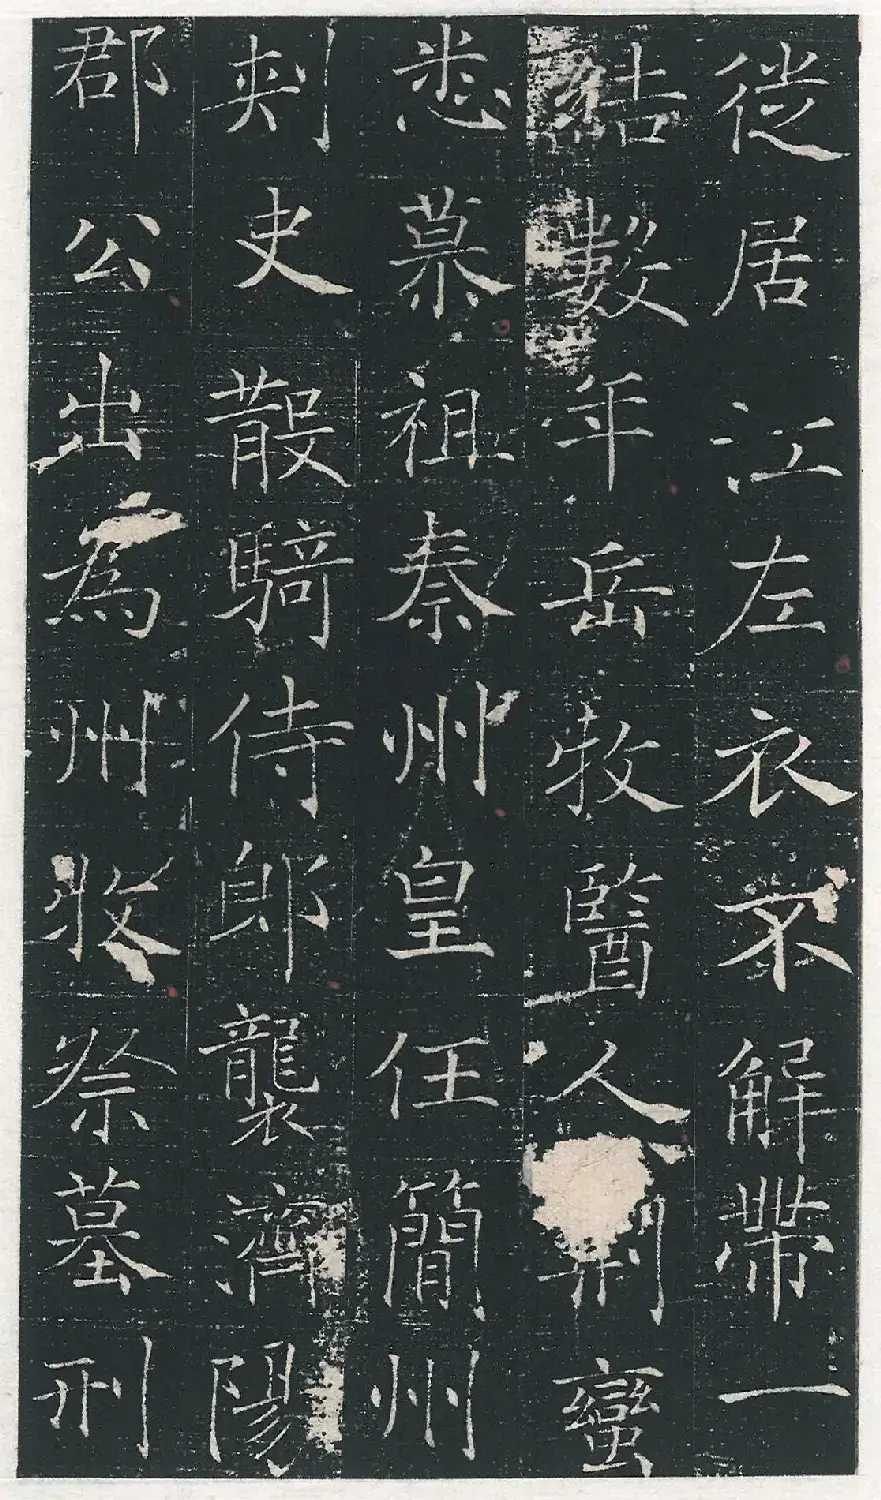 徙居江左衣不解帶一
結數年岳牧醫人荊蠻
悉慕祖秦州皇任簡州
刺史散騎侍郎襲濟陽
郡公出為州牧祭墓刑